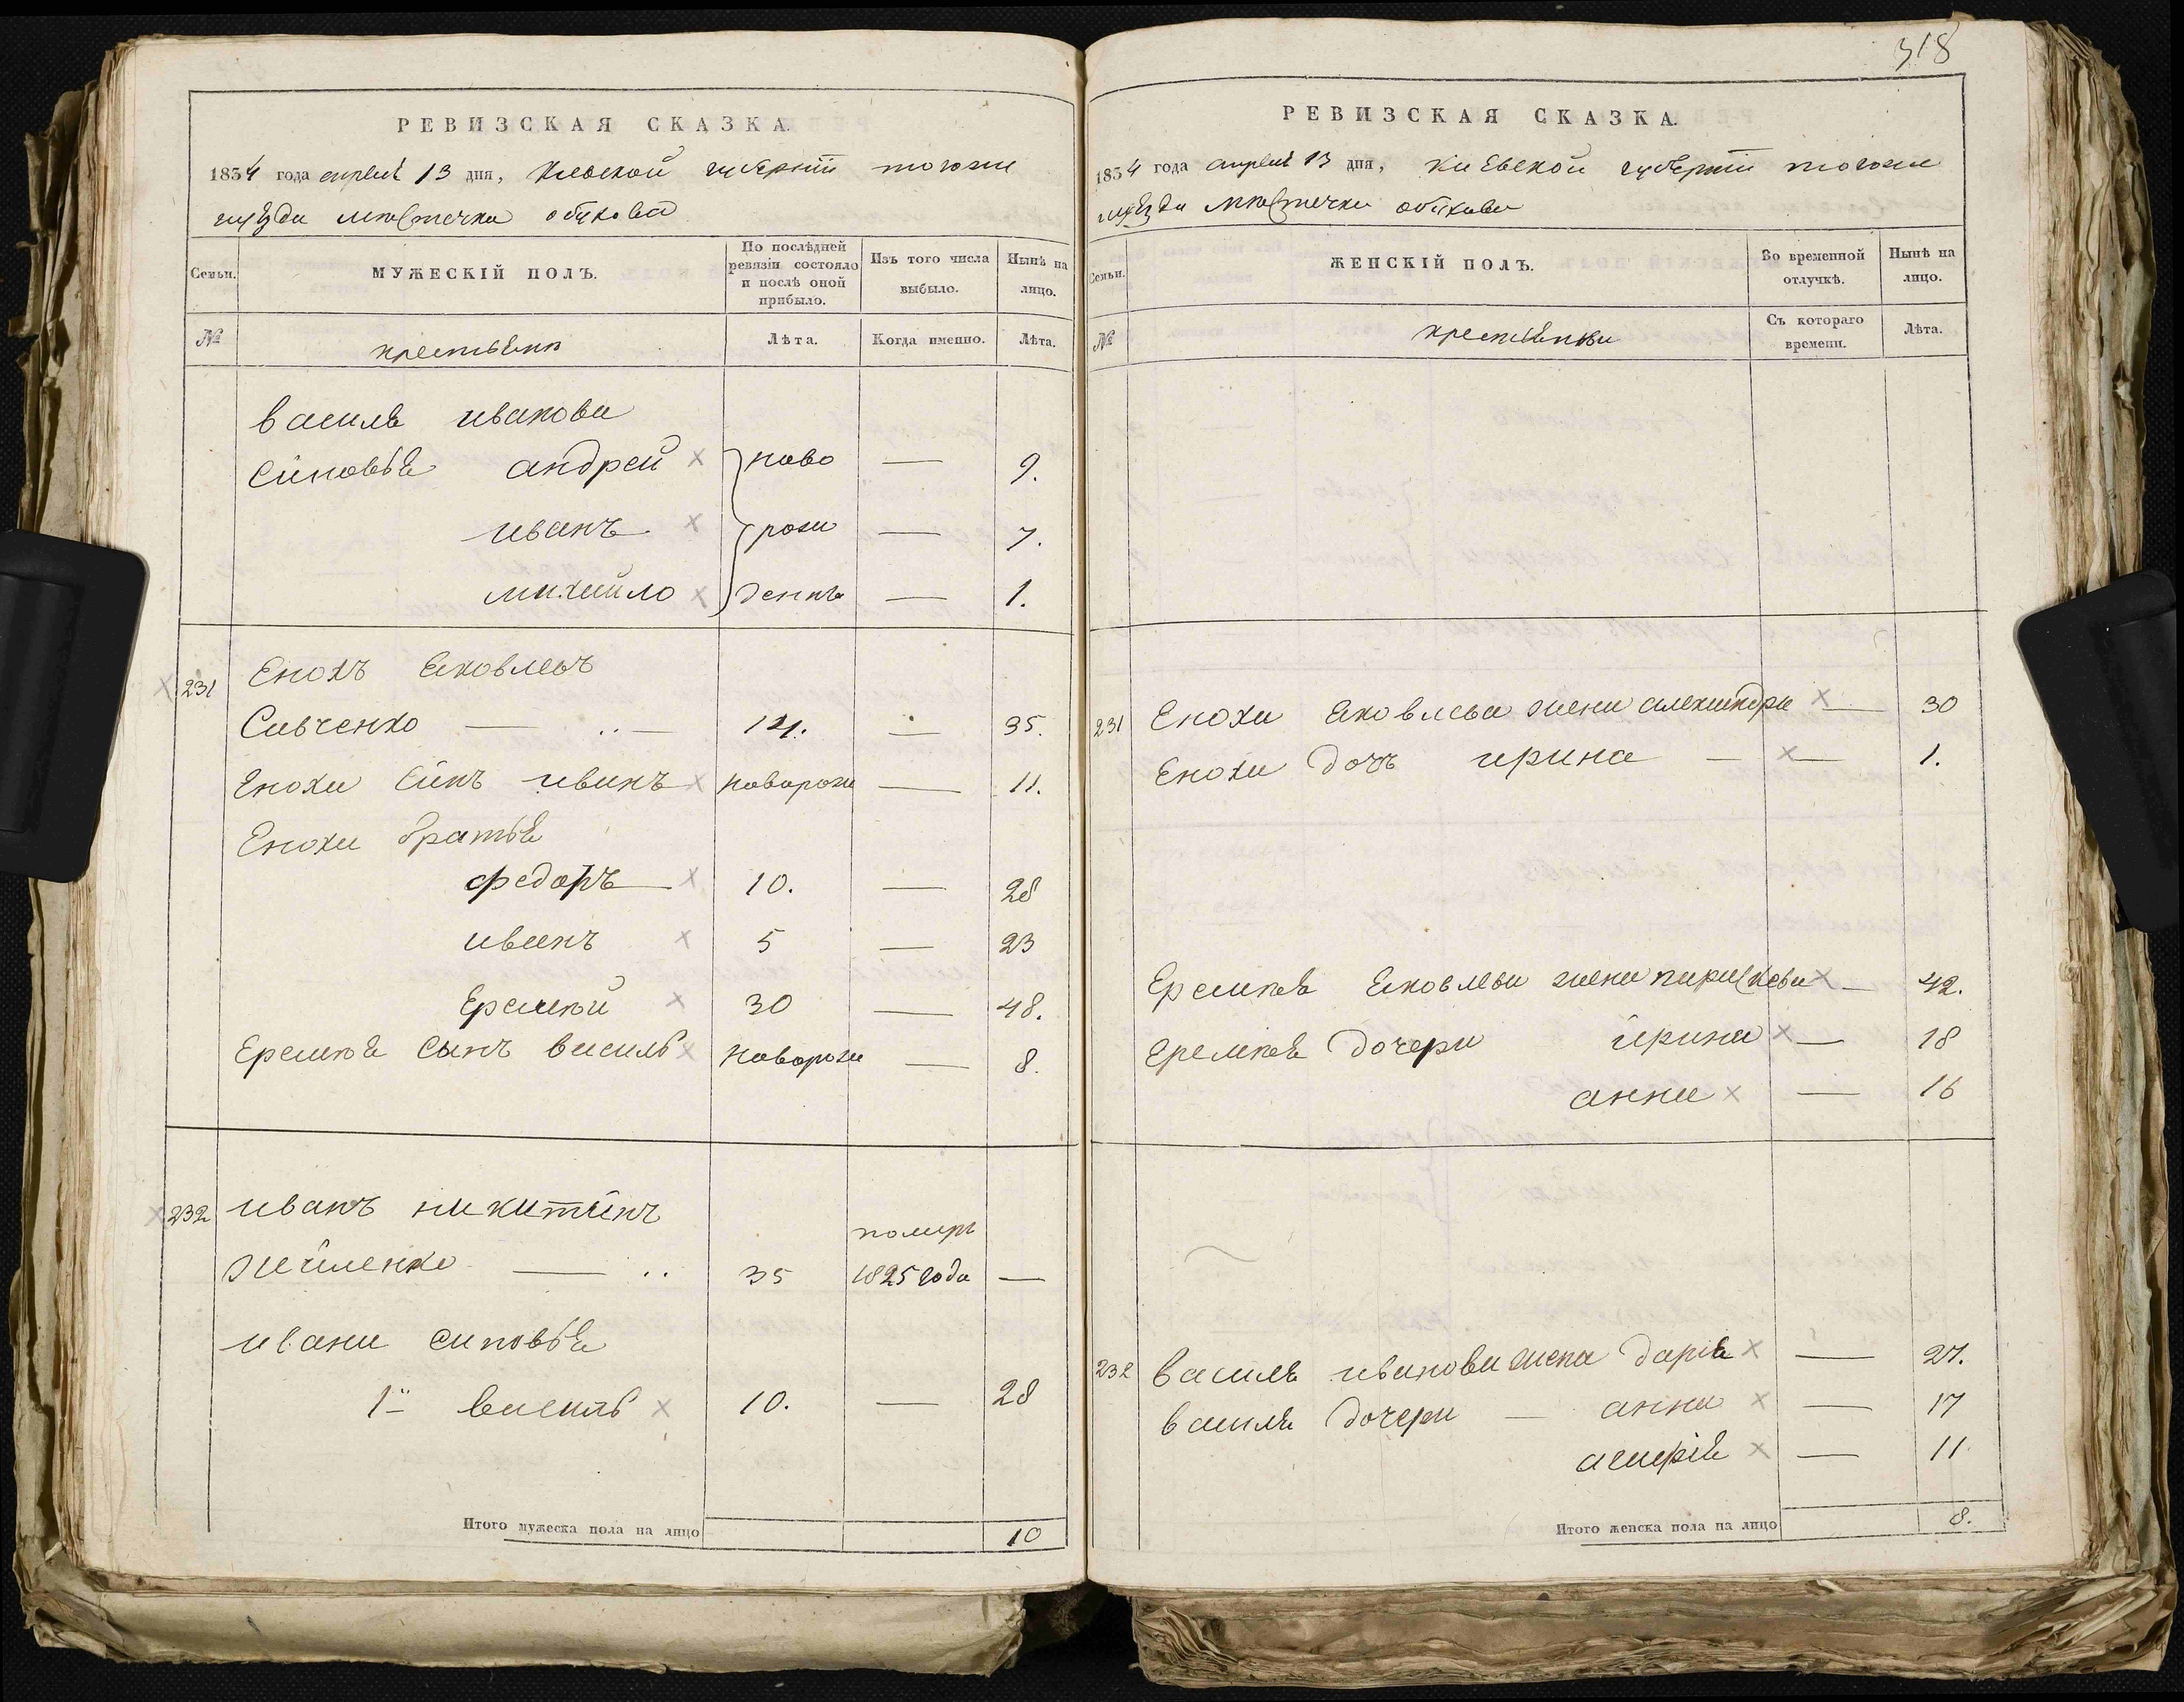 318
РЕВИЗСКАЯ СКАЗКА.
1834 года апреля 13 дня, Киевской губернии тогожъ
уезда местечка обухова
Семьи. МУЖЕСКІЙ ПОЛЪ. По послѣдней ревизіи состояло и послѣ оной прибыло. Изъ того числа выбыло. Нынѣ на лицо.
№ крестьяне Лѣта. Когда именно. Лѣта.
василя иванова
синовья андрей ново — 9.
иванъ рож — 7.
михайло денны — 1.
231 Енохъ Яковлевъ
Савченко — 14. — 35.
Еноха синъ иванъ новорож — 11.
Еноха братья
федоръ 10. — 28
иванъ 5 — 23
Еремѣй 30 — 48.
Еремѣя сынъ василь новорож — 8.
232 иванъ никитинъ
помръ
35 1825 года —
ивана синовья
1й василь 10. — 28
Итого мужеска пола на лицо 10
РЕВИЗСКАЯ СКАЗКА.
1834 года апреля 13 дня, Киевской губернии тогожъ
уезда местечка обухова
Семьи. ЖЕНСКІЙ ПОЛЪ. Во временной отлучкѣ. Нынѣ на лицо.
№ крестьянки Съ котораго времени. Лѣта.
231 Еноха Яковлева жена александра — 30
Еноха дочъ ирина — — 1.
Еремѣя Яковлева жена парасковия — 42.
Еремѣя дочери ирина — 18
анна — 16
232 василя иванова жена дария — 27.
василя дочери — анна — 17
агафия — 11
Итого женска пола на лицо 8.